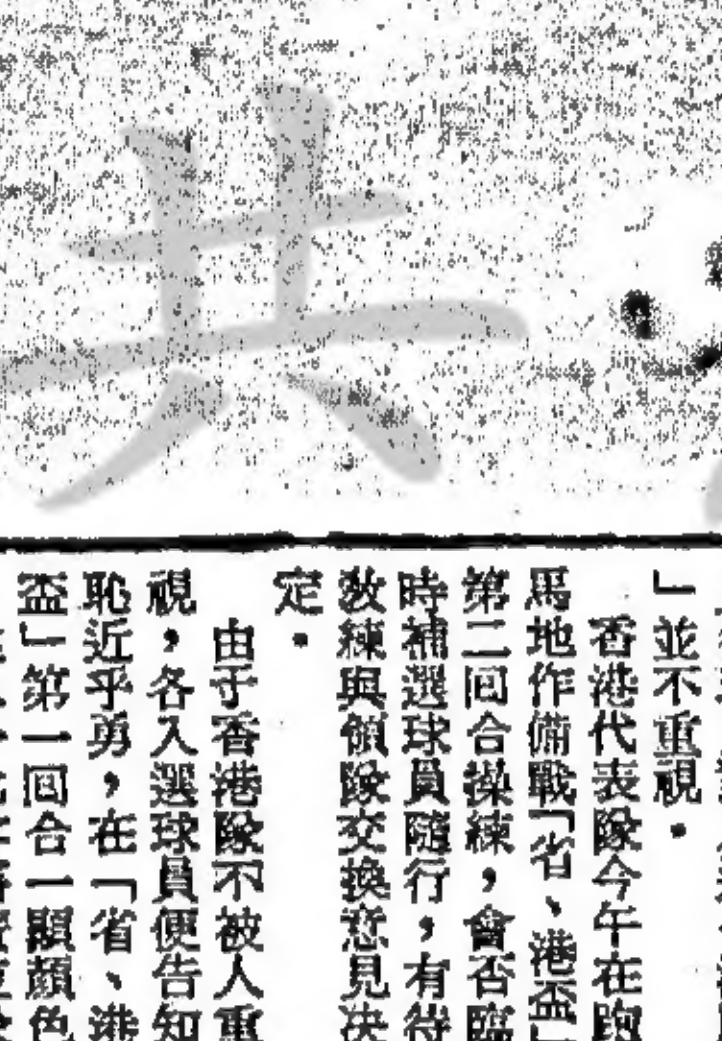 共
」並不重視。
香港代表隊今午在跑
馬地作備戰「省、港盃」
第二回合操練，會否臨
時補選球員隨行，有待
教練與領隊交換意見決
定。
由于香港隊不被人重
視，各入選球員便告知
恥近乎勇，在「省、港
盃」第一回合一顯顏色